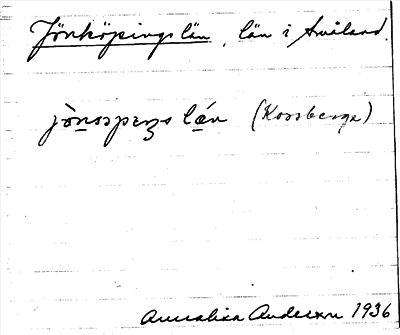 Jönköpings län, län i Småland.
län (Korsberga)
Annalisa Anderson 1936